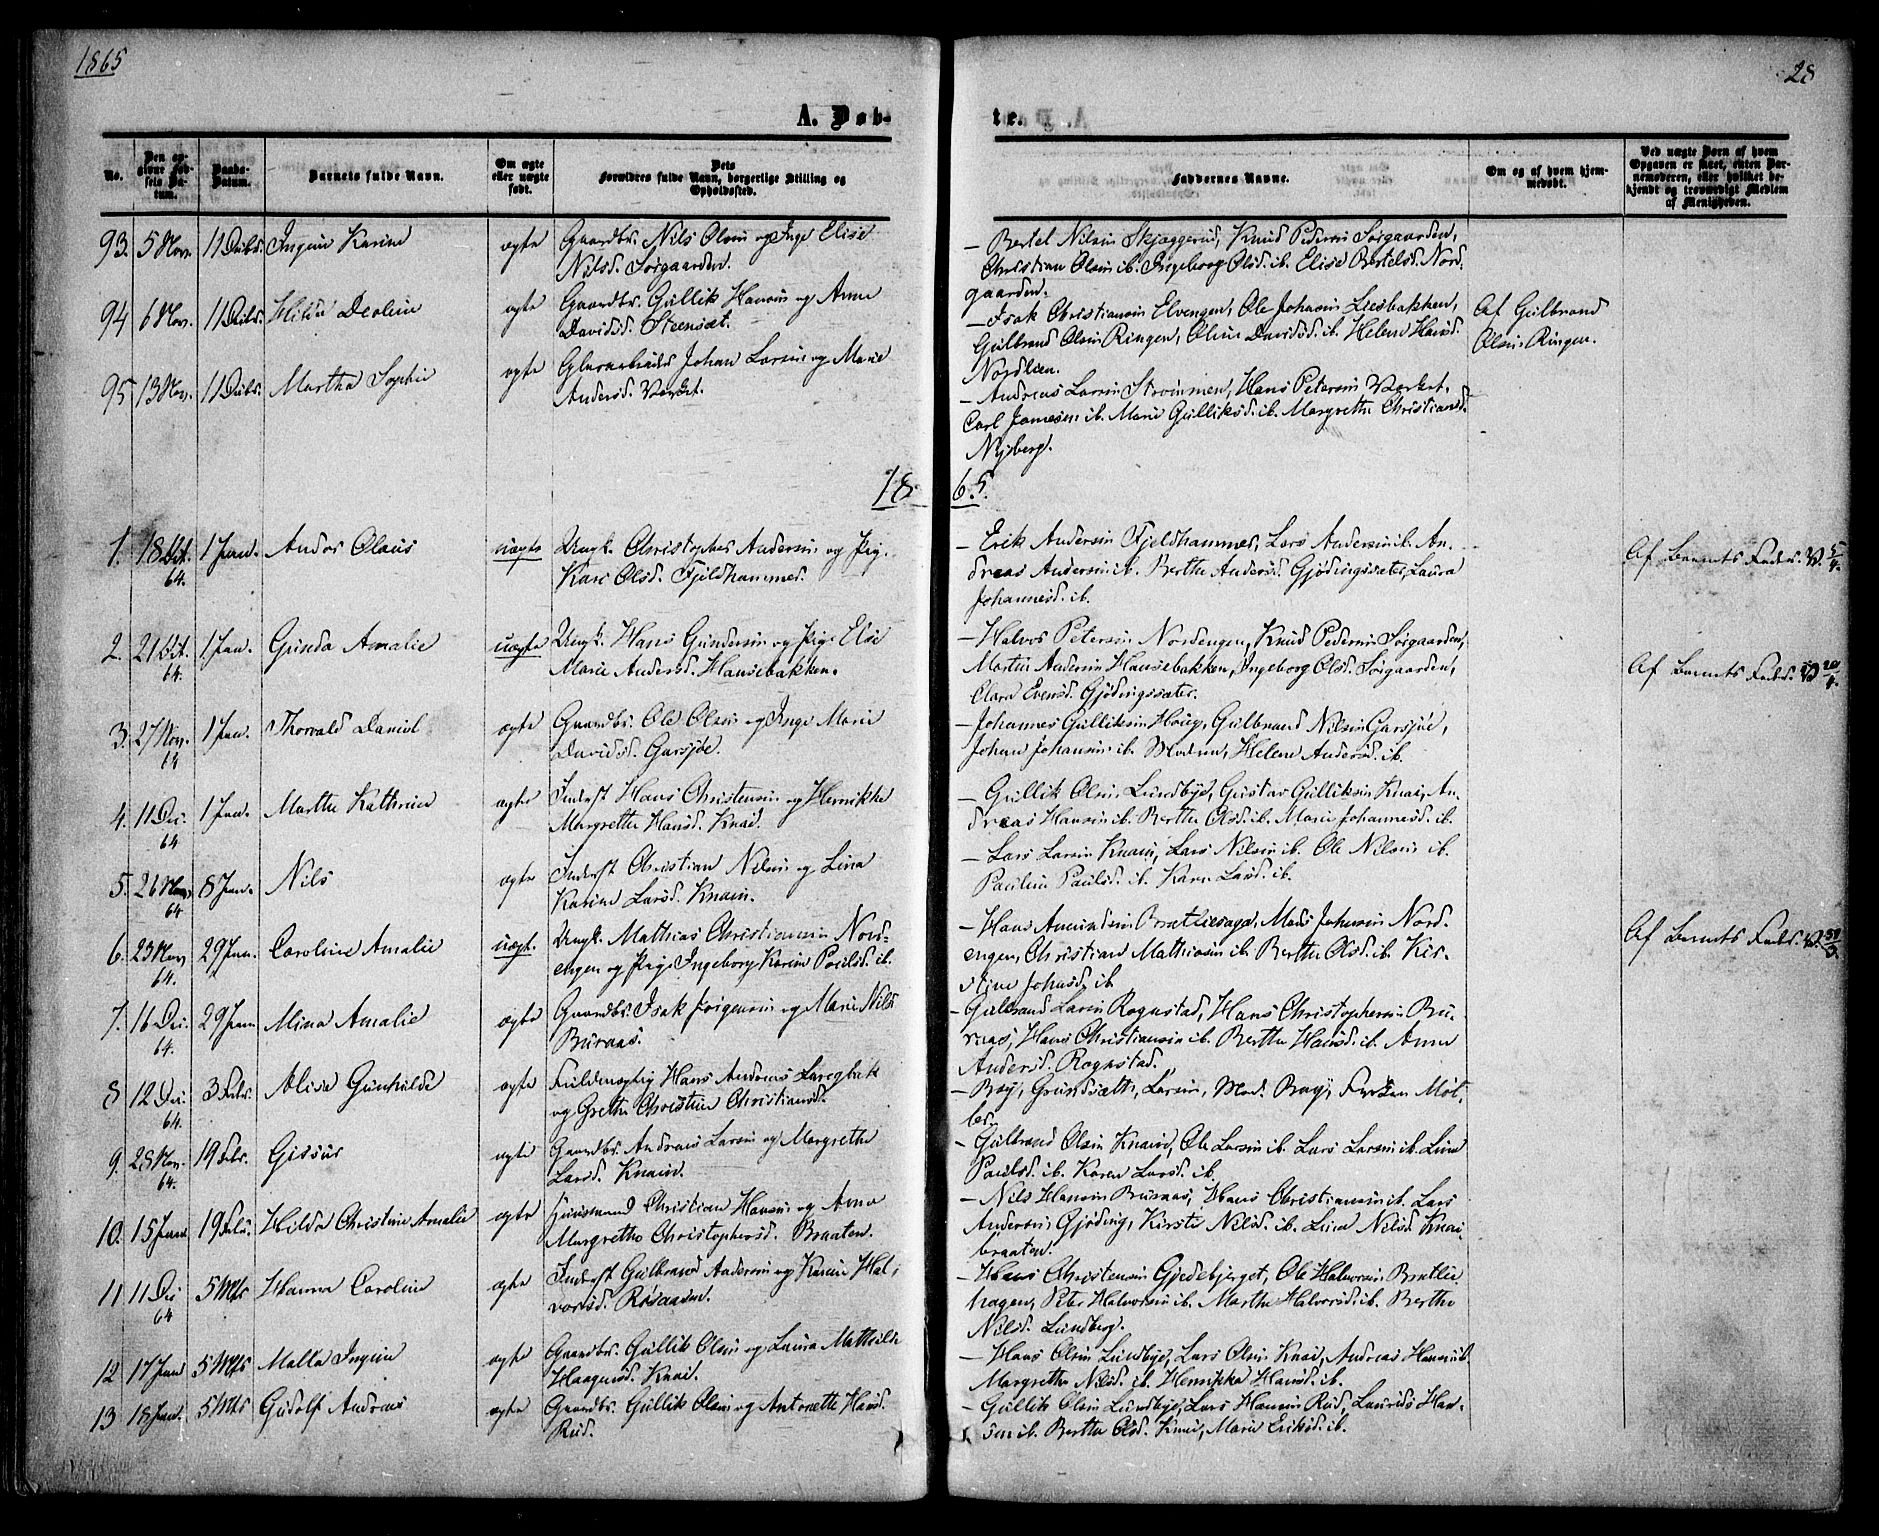 1865
28
A. Døb-
te.
No.
Den op-
givne Fød-
sels Da-
tum.
Daabs-
Datum.
Barnets fulde Navn.
Om ægte
eller uægte
født.
Dets
Forældres fulde Navn, borgerlige Stilling og
Opholdssted.
Faddernes Navne.
Om og af hvem hjem-
medøbt.
Ved uægte Børn af hvem
Opgaven er skeet, enten Bar-
nemoderen, eller hvilket be-
kjendt og troværdigt Medlem
af Menigheden.
93. 5 Nov. 11 Decbr. Karine ægte Gaardbr. Nils Olsen og Inge Elise
Nilsd. Sørgaarden.
– Bertel Nilsen Skjæggerud, Knud Pedersen Sørgaarden,
Christian Olsen ib. Ingeborg Olsd. ib. Elise Bertelsd. Nord-
gaarden.
94 6 Nov. 11 Decbr. Hilda ægte Gaardbr. Gullik Hansen og Anne
Davidsd. Steensæt.
– Isak Christiansen Elvengen, Ole Johnsen Liesbakken,
Gulbrand Olsen Ringen, Oline Davidsd. ib. Helene Hansd.
Nordlien.
Af Gulbrand
Olsen Ringen.
95 13 Nov. 11 Decbr. Martha Sophie ægte Glasarbeider Johan Larsen og Marie
Andersd. Værket.
– Andreas Larsen Strømmen, Hans Petersen Værket,
Carl Jamesen ib. Marie Gulliksd. ib. Margrethe Christiansd.
Nyberg.
18 65.
1. 18 Oct. 64. 1 Jan. Olaus uægte Ungk. Christopher Andersen og Pig.
Kari Olsd. Fjeldhammer.
– Erik Andersen Fjeldhammer, Lars Andersen ib. An-
dreas Andersen ib. Berthe Andersd. Gjødingssæter, Laura
Johannesd. ib.
Af Barnets Fader. 5/4.
2. 21 Oct. 64. 1 Jan. Gunda Amalie uægte Ungk. Hans Gundersen og Pige Else
Marie Andersd. Hansebakken.
– Halvor Petersen Nordengen, Knud Pedersen Sørgaarden,
Martin Andersen Hansebakken, Ingeborg Olsd. Sørgaarden,
Clara Evensd. Gjødingssæter.
Af Barnets Fader.
3. 27 Nov. 64 1 Jan. Thorvald Daniel ægte Gaardbr. Ole Olsen og Inge Marie
Davidsd. Garsjøe.
– Johannes Gulliksen Houg, Gulbrand Nilsen Garsjøe,
Johan Johansen ib. Moderen, Helene Andersd. ib.
4. 11 Dec. 64 1 Jan. Marthe Kathrine ægte Inderst Hans Christensen og Henrikke
Margrethe Hansd. Knai.
– Gullik Olsen Lundbye, Gustav Gulliksen Knai, An-
dreas Hansen ib. Berthe Olsd. ib. Marie Johannesd. ib.
5. 26 Nov. 64 8 Jan. Nils ægte Inderst Christian Nilsen og Lina
Karine Larsd. Knain.
– Lars Larsen Knain, Lars Nilsen ib. Ole Nilsen ib.
Pauline Paulsd. ib. Karen Larsd. ib.
6. 23 Nov 64. 29 Jan. Caroline Amalie uægt. Ungk. Mathias Christiansen Nord-
engen og Pige Ingeborg Karine Paulsd. ib.
– Hans Amundsen Brætliehagen, Mads Johansen Nord-
engen, Christian Mathiasen ib. Berthe Olsd. ib. Kir-
stine Johnsd. ib.
Af Barnets Fader.
7. 16 Dec. 64. 29 Jan Mina Amalie ægte Gaardbr. Isak Jørgensen og Marie Nilsd
Buraas.
– Gulbrand Larsen Rognstad, Hans Christophersen Bu-
raas, Hans Christiansen ib. Berthe Hansd. ib. Anne
Andersd. Rognstad.
8 12 Dec. 64. 3 Febr. Alise Gunhilde ægte Fuldmægtig Hans Andreas
og Grethe Christine Christiansd.
– Bay, Grundsæth, Larsen, Mad. Bay, Frøken Møl-
ler.
9. 28 Nov. 64. 19 Febr. Gissur ægte Gaardbr. Andreas Larsen og Margrethe
Larsd. Knain.
– Gulbrand Olsen Knain, Ole Larsen ib. Lars Larsen ib. Lina
Paulsd. ib. Karen Larsd. ib.
10. 15 Janr 19 Febr. Hilda Christine Amalie ægte Huusmand Christian Hansen og Anne
Margrethe Christophersd. Braaten.
– Nils Hansen Buraas, Hans Christiansen ib. Lars
Andersen Gjøding, Kirsti Nilsd. ib. Lina Nilsd. Knai-
braaten.
11 11 Dec 64 5 Mts Hanna Caroline ægte Inderst Gulbrand Andersen og Karine Hal-
vorsd. Røsaasen.
– Hans Christensen Gjedebjerget, Ole Halvorsen Brætlie-
hagen, Peter Halvorsen ib. Marthe Halvorsd. ib. Berthe
Nilsd. Lundberg.
12 17 Janr 5 Mts Malla ægte Gaardbr. Gullik Olsen og Laura Mathilde
Haagensd. Knai.
– Hans Olsen Lundbye, Lars Olsen Knai, Andreas Hansen ib.
Margrethe Nilsd. ib. Henrikke Hansd. ib.
13 18 Janr. 5 Mts Gudolf Andreas ægte Gaardbr. Gullik Olsen og Antonette Hansd.
Rud.
– Gullik Olsen Lundbye, Lars Hansen Rud, Laurids Han-
sen ib. Berthe Olsd. Knai, Marie Eriksd. ib.